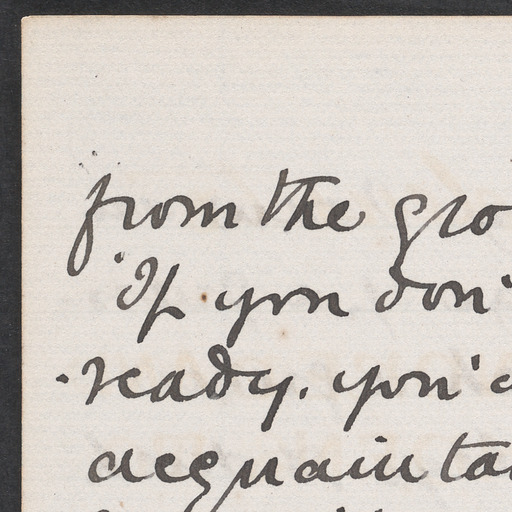 from the gro
If you don'
ready. you'd
acquainta